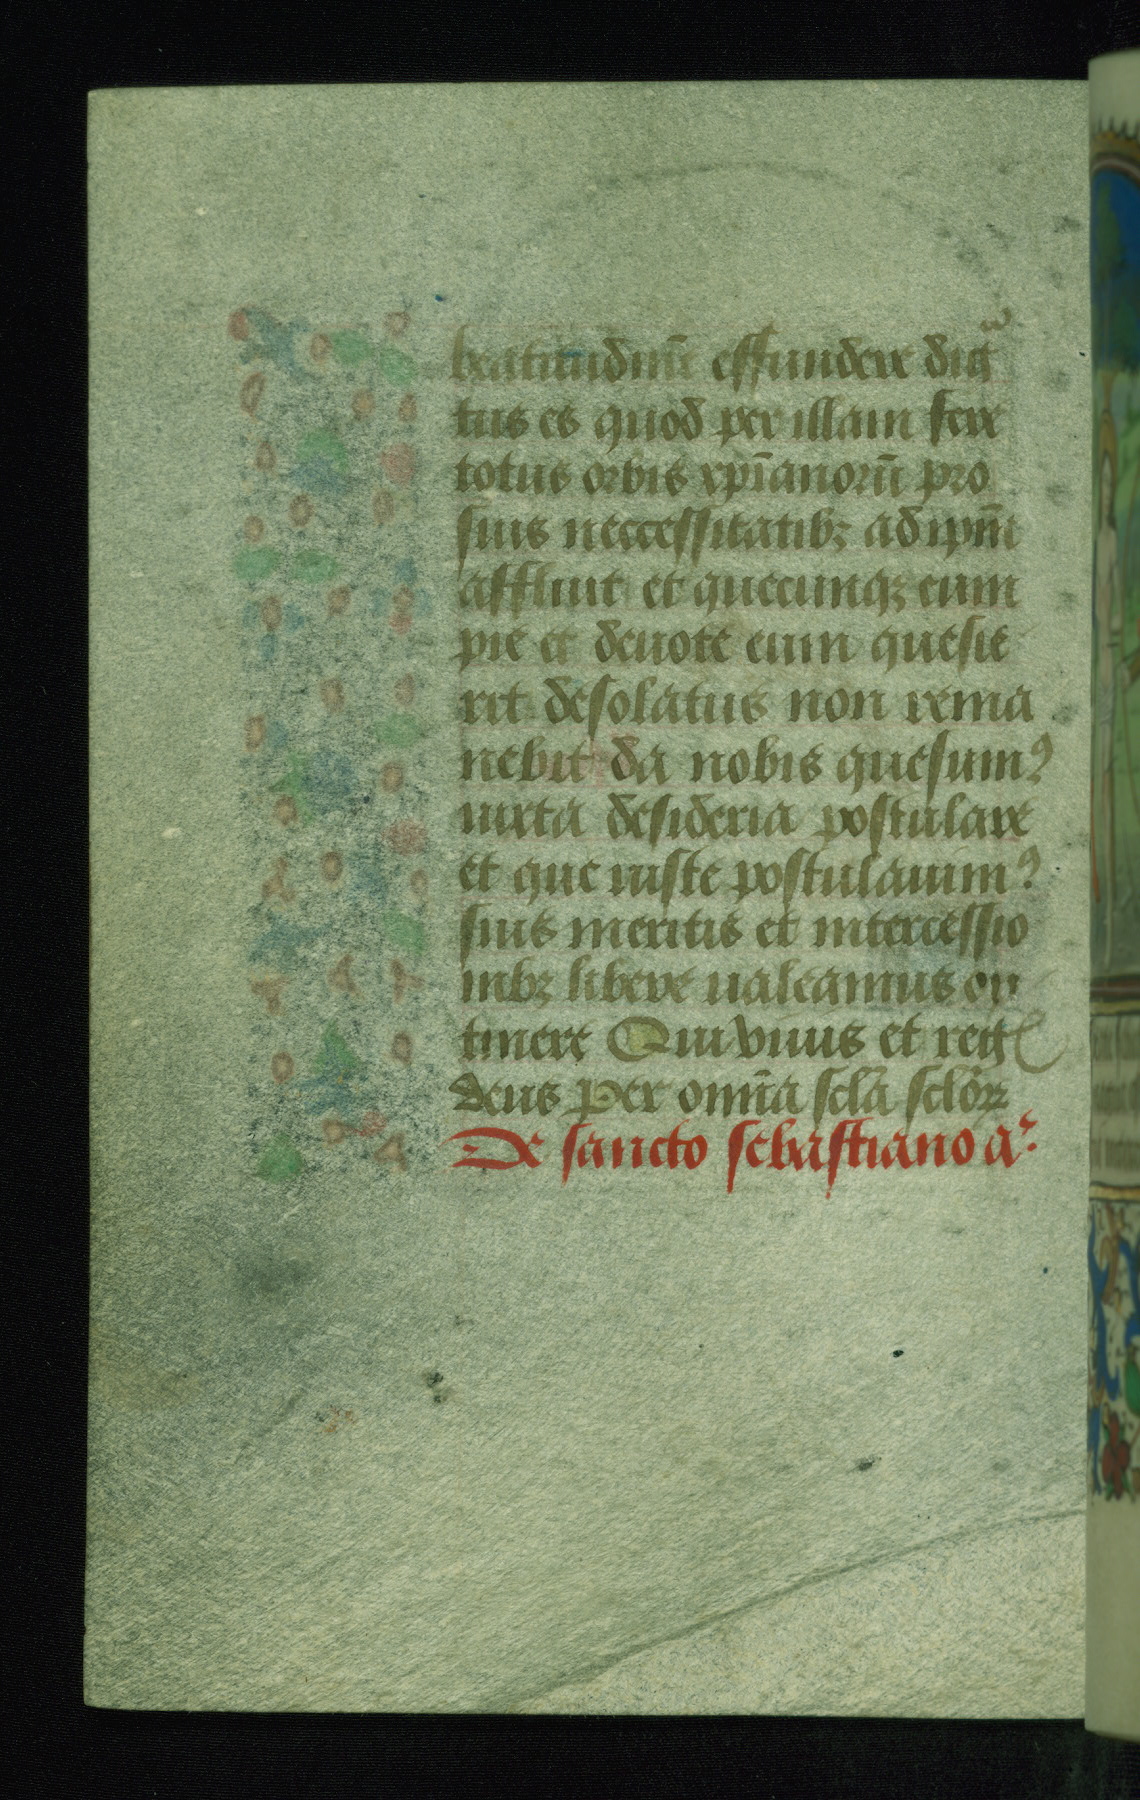 beatitudinū effundere dig̃
tus es quod per illam fere
totus orbis xp̄ianorū pro
suis neccessitatibꝫ ad ipm̄
affluit et quecunqꝫ eum
pie et deuote eum quesie
rit desolatus non rema
nebit da nobis quesumꝰ
iuxta desideria postulare
et que iuste postulauimꝰ
suis meritis et intercessio
nibꝫ libere ualeamus ou
tinere Qui viuis et reg̃
deus per om̄ia scl̄a scl̄oꝝ
De sancto sebastiano aᵃ